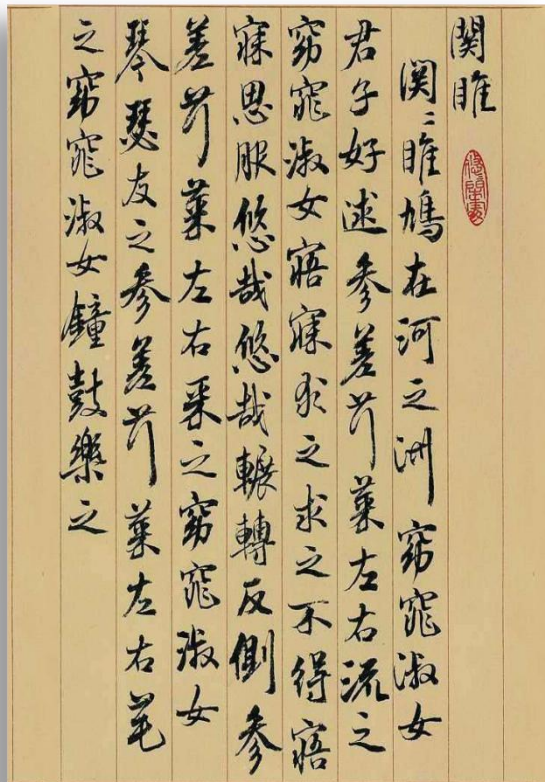 関雎
関〻雎鳩在河之洲窈窕淑女
君子好逑参差荇菜左右流之
窈窕淑女寤寐求之求之不得寤
寐思服悠哉悠哉輾轉反側参
差荇菜左右采之窈窕淑女
琴瑟友之参差荇菜左右芼
之窈窕淑女鐘鼓樂之